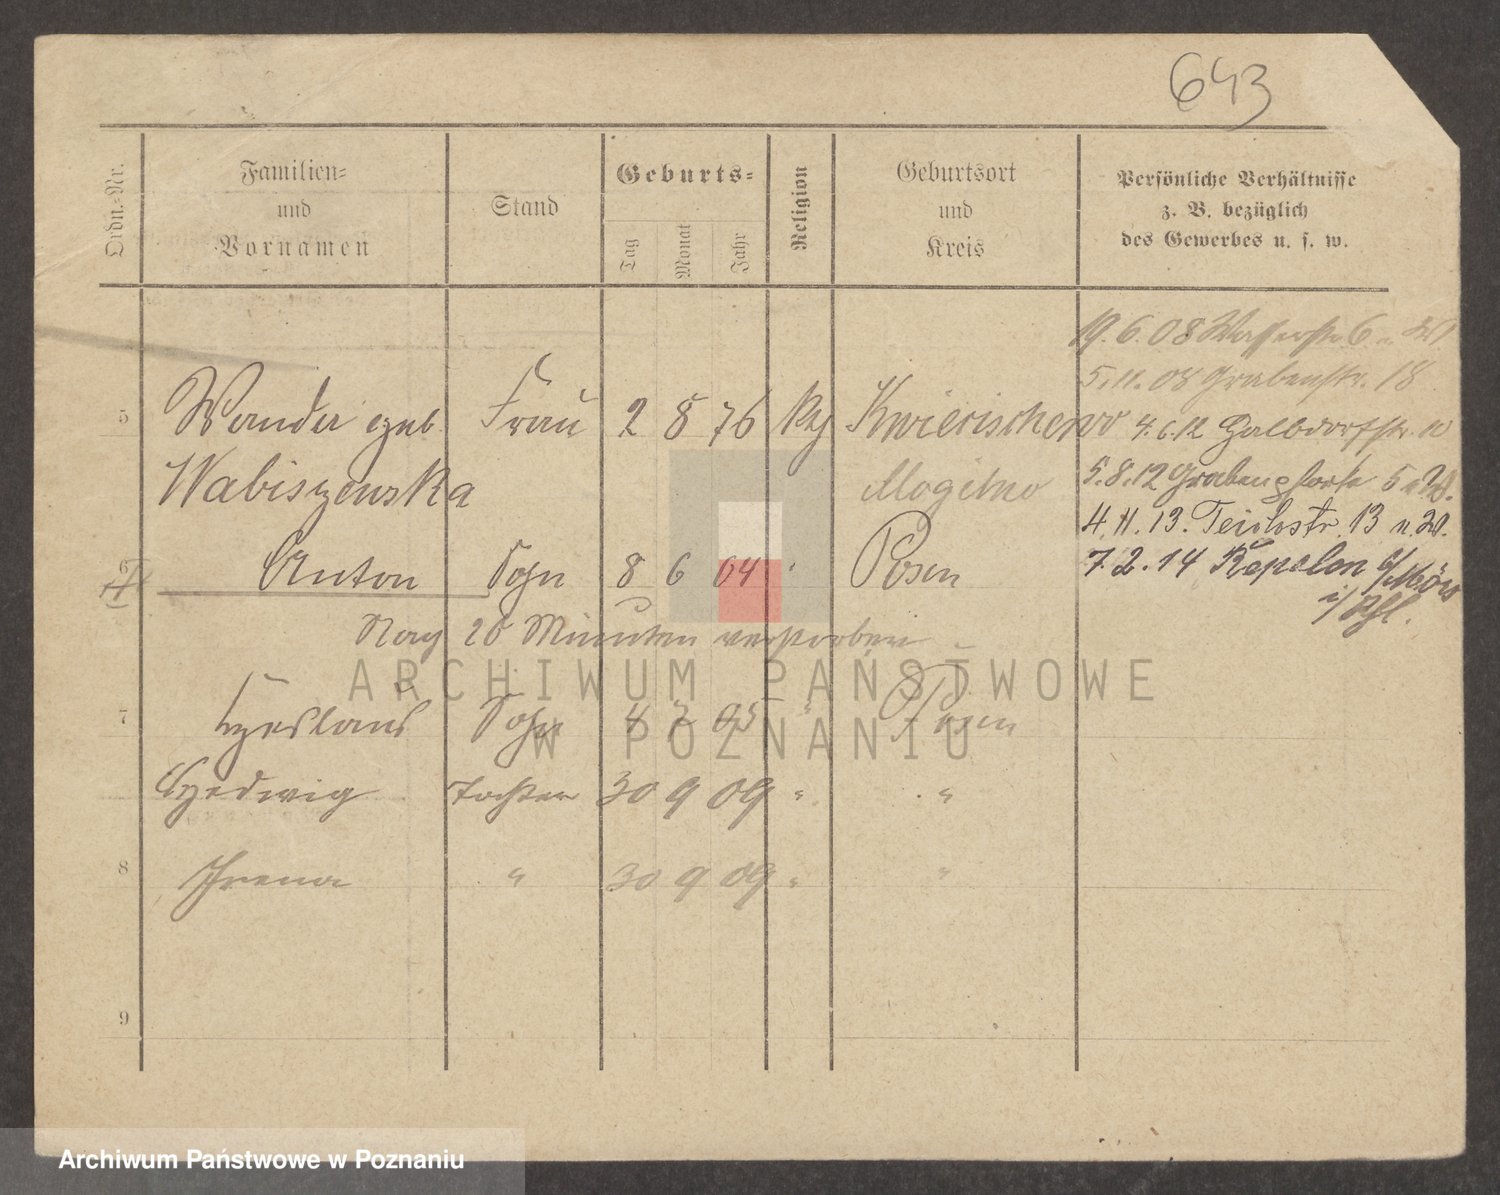 643
Ordn.-Nr.
Familien-
und
Vornamen
Stand
Geburts-
Tag
Monat
Jahr
Religion
Geburtsort
und
Kreis
Persönliche Verhältnisse
z. B. bezüglich
des Gewerbes u. s. w.
19.6.08 Wasserstr 6
5.11.08 Grabenstr. 18
5 Wanda geb. Frau 2 8 76 Kth
4.6.12
Wabiszewska Mogilno
5.8.12 Grabenpforte 5
4.11.13. Teichstr. 13 n. W.
6 Anton Sohn 8 6 04 " Posen
7.2.14 Kapelon b/Mörs
i/Rhl.
Nach 20 Minuten verstorben
7 Czeslaus Sohn 4 7 05 " Posen
Hedwig Tochter 30 9 09 " "
8 Irena " 30 9 09 " "
9
ARCHIWUM PAŃSTWOWE
W POZNANIU
Archiwum Państwowe w Poznaniu